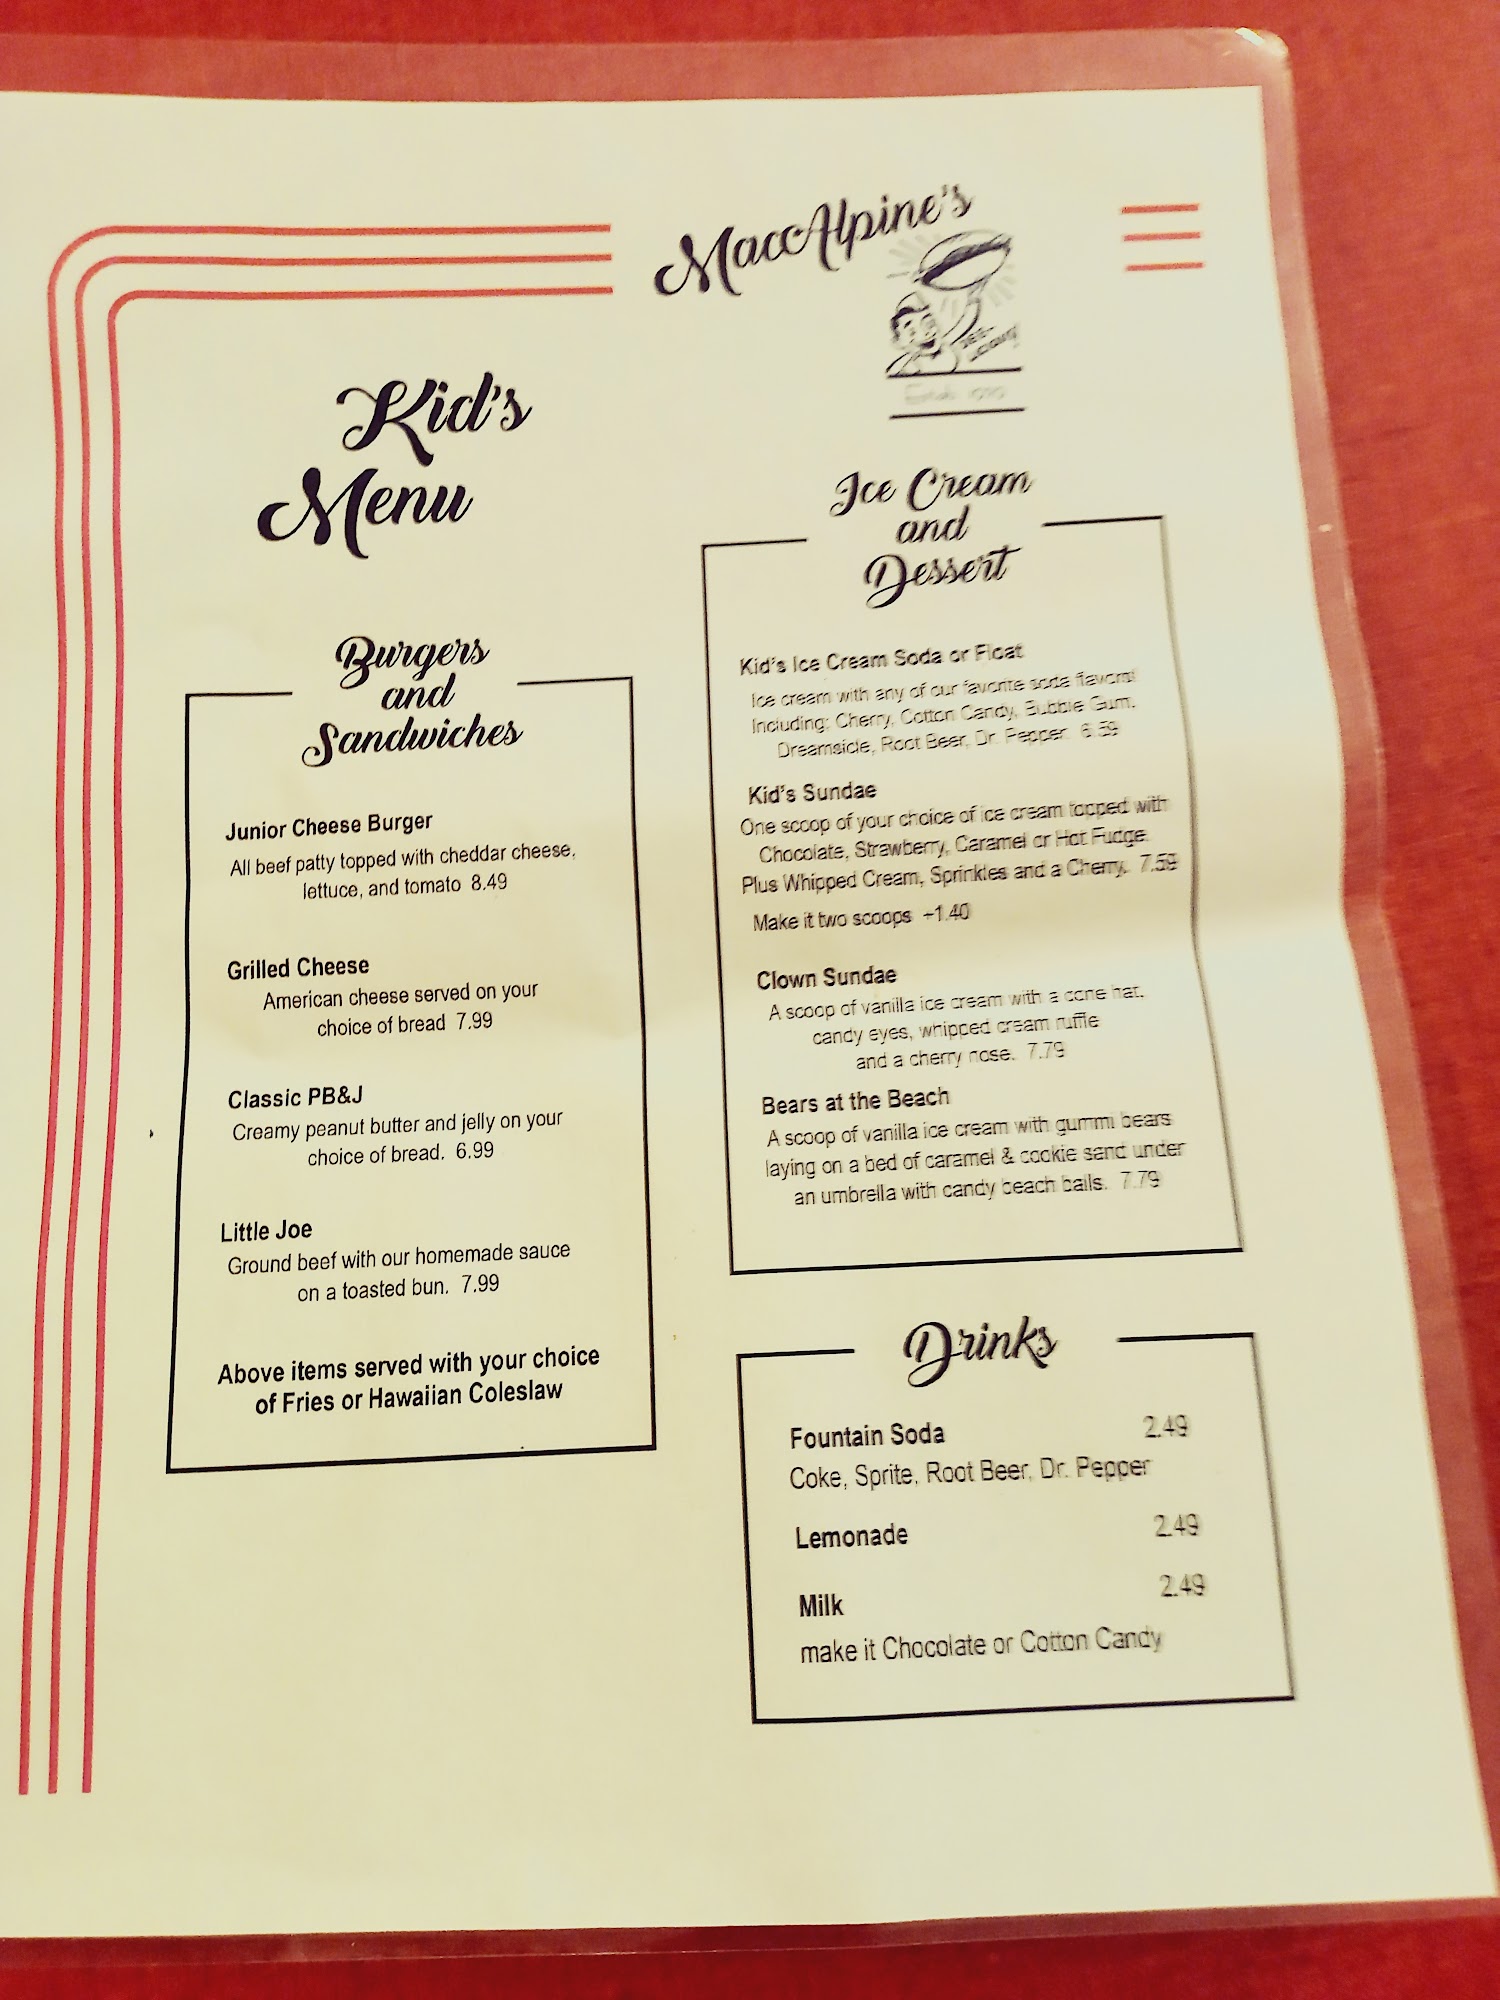 MacAlpine's
Kid's
Menu
Burgers
and
Sandwiches
Junior Cheese Burger
All beef patty topped with cheddar cheese,
lettuce, and tomato 8.49
Grilled Cheese
American cheese served on your
choice of bread 7.99
Classic PB&J
Creamy peanut butter and jelly on your
choice of bread. 6.99
Little Joe
Ground beef with our homemade sauce
on a toasted bun. 7.99
Above items served with your choice
of Fries or Hawaiian Coleslaw
Ice Cream
and
Dessert
Kid's Ice Cream Soda or Float
Ice cream with any of our favorite soda flavors!
Including: Cherry, Cotton Candy, Bubble Gum,
Dreamsicle, Root Beer, Dr. Pepper 6.59
Kid's Sundae
One scoop of your choice of ice cream topped with
Chocolate, Strawberry, Caramel or Hot Fudge.
Plus Whipped Cream, Sprinkles and a Cherry. 7.59
Make it two scoops +1.40
Clown Sundae
A scoop of vanilla ice cream with a cone hat,
candy eyes, whipped cream ruffle
and a cherry nose. 7.79
Bears at the Beach
A scoop of vanilla ice cream with gummi bears
laying on a bed of caramel & cookie sand under
an umbrella with candy beach balls. 7.79
Drinks
Fountain Soda 2.49
Coke, Sprite, Root Beer, Dr. Pepper
Lemonade 2.49
Milk 2.49
make it Chocolate or Cotton Candy